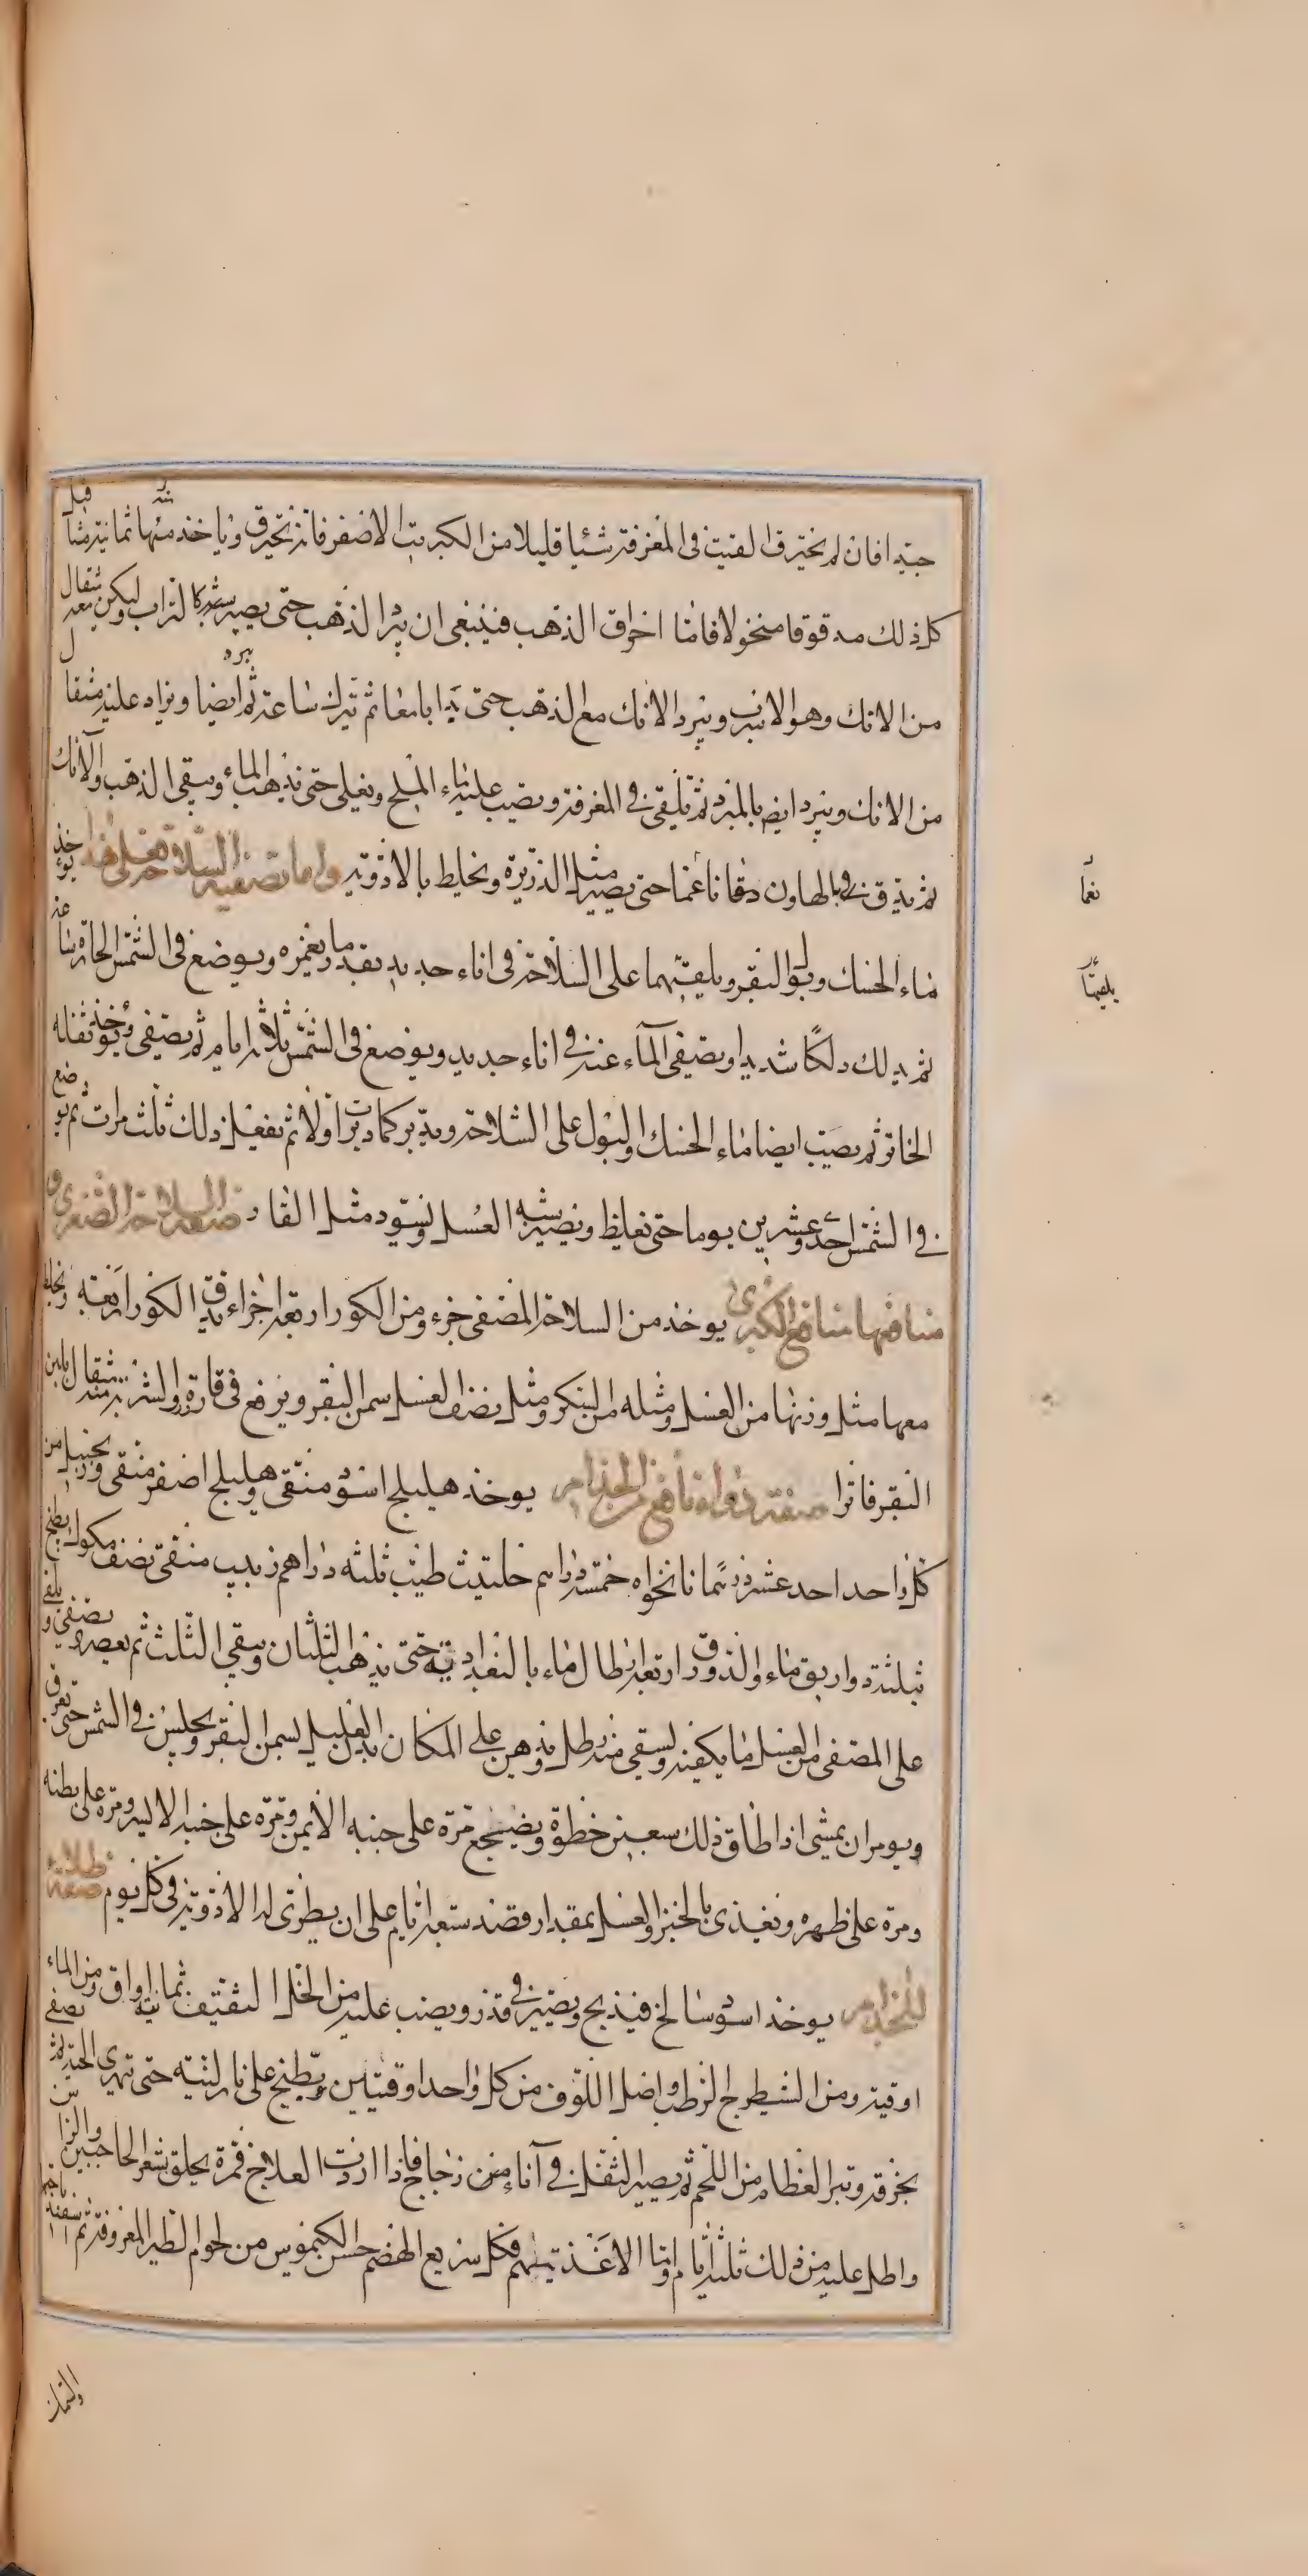 جيدا فان لم يحترق القيت في المغرفة شيئا قليلا من الكبريت الاصفر فانه يحترق وياخذ منها ثمانية مثاقيل
كل ذلك مدقوقا منخولا فاما احراق الذهب فينبغي ان يبرد الذهب حتى يصير شبه كالتراب وليكن معه مثقال
من الانك وهو الاسرب ويبرد الانك مع الذهب حتى يذابا معا ثم يترك ساعة ثم يبرد ايضا ويزاد عليه مثقال
من الانك ويبرد ايضا بالمبرد ثم يلقى في المغرفة ويصب عليه ماء الملح ويغلى حتى يذهب الماء ويبقى الذهب والانك
ثم يدق في بالهاون دقا ناعما حتى يصير مثل الذريرة ويخلط بالادوية واما تصفية السلاحة فعلى هذا يوخذ
ماء الحسك وبول البقر ويلقيهما على السلاحة في اناء حديد بقدر ما يغمره ويوضع في الشمس الحارة ساعة
ثم يدلك دلكا شديدا ويصفى الماء عنه في اناء حديد ويوضع في الشمس ثلاثة ايام ثم يصفى ويوخذ ثفله
الخاثر ثم يصب ايضا ماء الحسك والبول على السلاحة ويدبر كما دبرت اولا ثم يفعل ذلك ثلث مرات ثم يوضع
في الشمس احد وعشرين يوما حتى يغلظ ويصير شبه العسل ويسود مثل القار صنعة السلاحة الصغرى و
منافعها منافع الكبرى يوخذ من السلاحة المصفى جزء ومن الكور اربعة اجزاء يدق الكور اربعة ويخلط
معها مثل وزنها من العسل ومثله من السكر ومثل نصف العسل سمن البقر ويرفع في قارورة والشربة منه مثقال بلبن
البقر فاترا صفة دواء نافع من الجذام يوخذ هليلج اسود منقى وهليلج اصفر منقى وزنجبيل من
كل واحد احد عشر درهما نانخواه خمسة دراهم حلتيث طيب ثلثه دراهم زبيب منقى نصف مكوك يطبخ
بثلثة دواريق ماء والدورق اربعة ارطال ماء بالبغدادية حتى يذهب الثلثان ويبقى الثلث ثم يعصر ويصفى ويلقى
على المصفى من العسل ما يكفيه ويسقى منه رطل ويدهن على المكان بدهن العليل لسمن البقر ويجلس في الشمس حتى يعرق
ويومر ان يمشي اذا طاق ذلك سبعين خطوة ويضجع مرة على جنبه الايمن ومرة على جنبه الايسر ومرة على بطنه
ومرة على ظهره ويغذى بالخبز والعسل بمقدار قصد سبعة ايام على ان يطرى له الادوية في كل يوم صفة طلاء
للجذام يوخذ اسود سالخ فيذبح ويصير في قدر ويصب عليه من الخل الثقيف ثمانية اواق ومن الماء
اوقية ومن الشيطرج الرطب واصل اللوف من كل واحد اوقيتين ويطبخ على نار لينة حتى تهرى الحية ثم يصفى
بخرقة وتبرا العظام من اللحم ثم يصير الثفل في اناء من زجاج فاذا اردت العلاج فمره يحلق شعر الحاجبين والراس
واطل عليه من ذلك ثلثة ايام واما الاغذية لهم فكل سريع الهضم حسن الكيموس من لحوم الطير المعروفة ثم
نعما
يلقيها